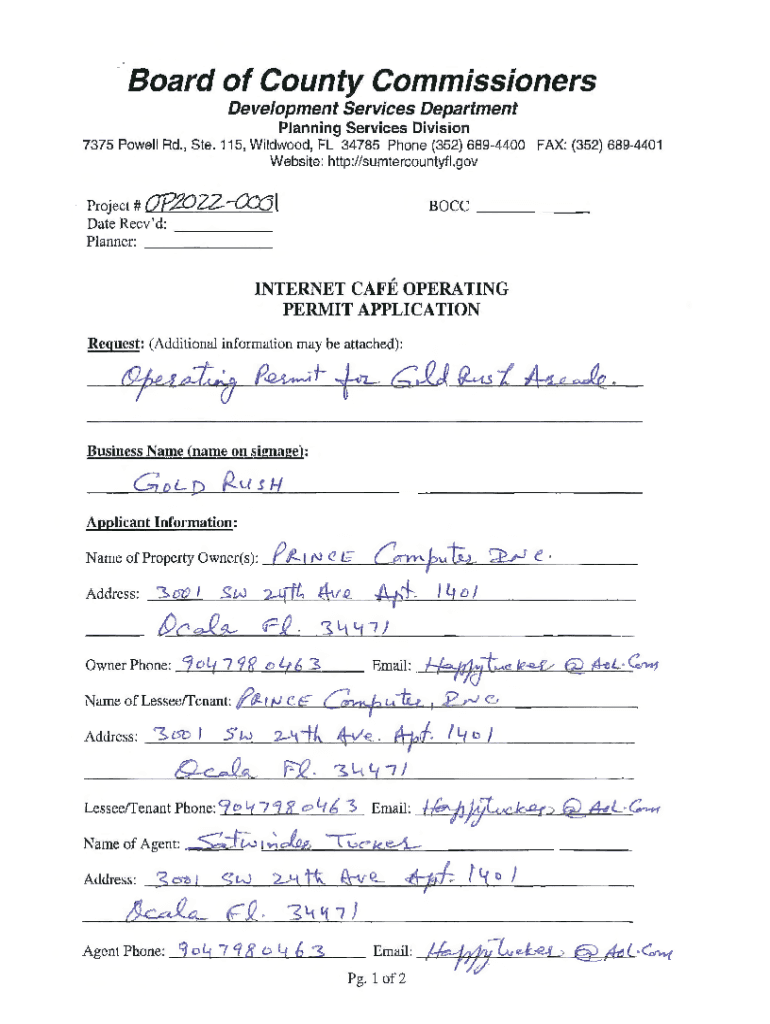 Board of County Commissioners
Development Services Department
Planning Services Division
7375 Powell Rd., Ste. 115, Wildwood, FL 34785 Phone (352) 689-4400 FAX: (352) 689-4401
Website: http://sumtercountyfl.gov
Project # OP2022-0001 BOCC
Date Recv'd:
Planner:
INTERNET CAFÉ OPERATING
PERMIT APPLICATION
Request: (Additional information may be attached):
Operating Permit for Gold Rush Arcade.
Business Name (name on signage):
GOLD RUSH
Applicant Information:
Name of Property Owner(s): PRINCE Computer INC.
Address: 3001 SW 24th Ave Apt. 1401
Ocala Fl. 34471
Owner Phone: 9047980463 Email: Happytucker@AOL.Com
Name of Lessee/Tenant: PRINCE Computer, INC
Address: 3001 SW 24th Ave. Apt. 1401
Ocala Fl. 34471
Lessee/Tenant Phone: 9047980463 Email: Happytucker@AOL.Com
Name of Agent: Satwinder Tucker
Address: 3001 SW 24th Ave Apt. 1401
Ocala Fl. 34471
Agent Phone: 9047980463 Email: Happytucker@AOL.Com
Pg. 1 of 2